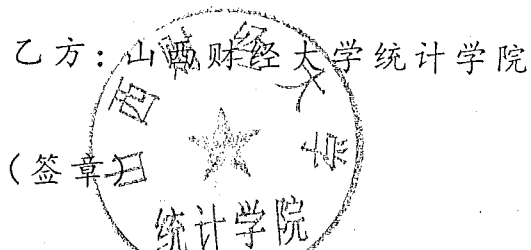 乙方：山西财经大学统计学院
（签章）
山西财经大学
统计学院